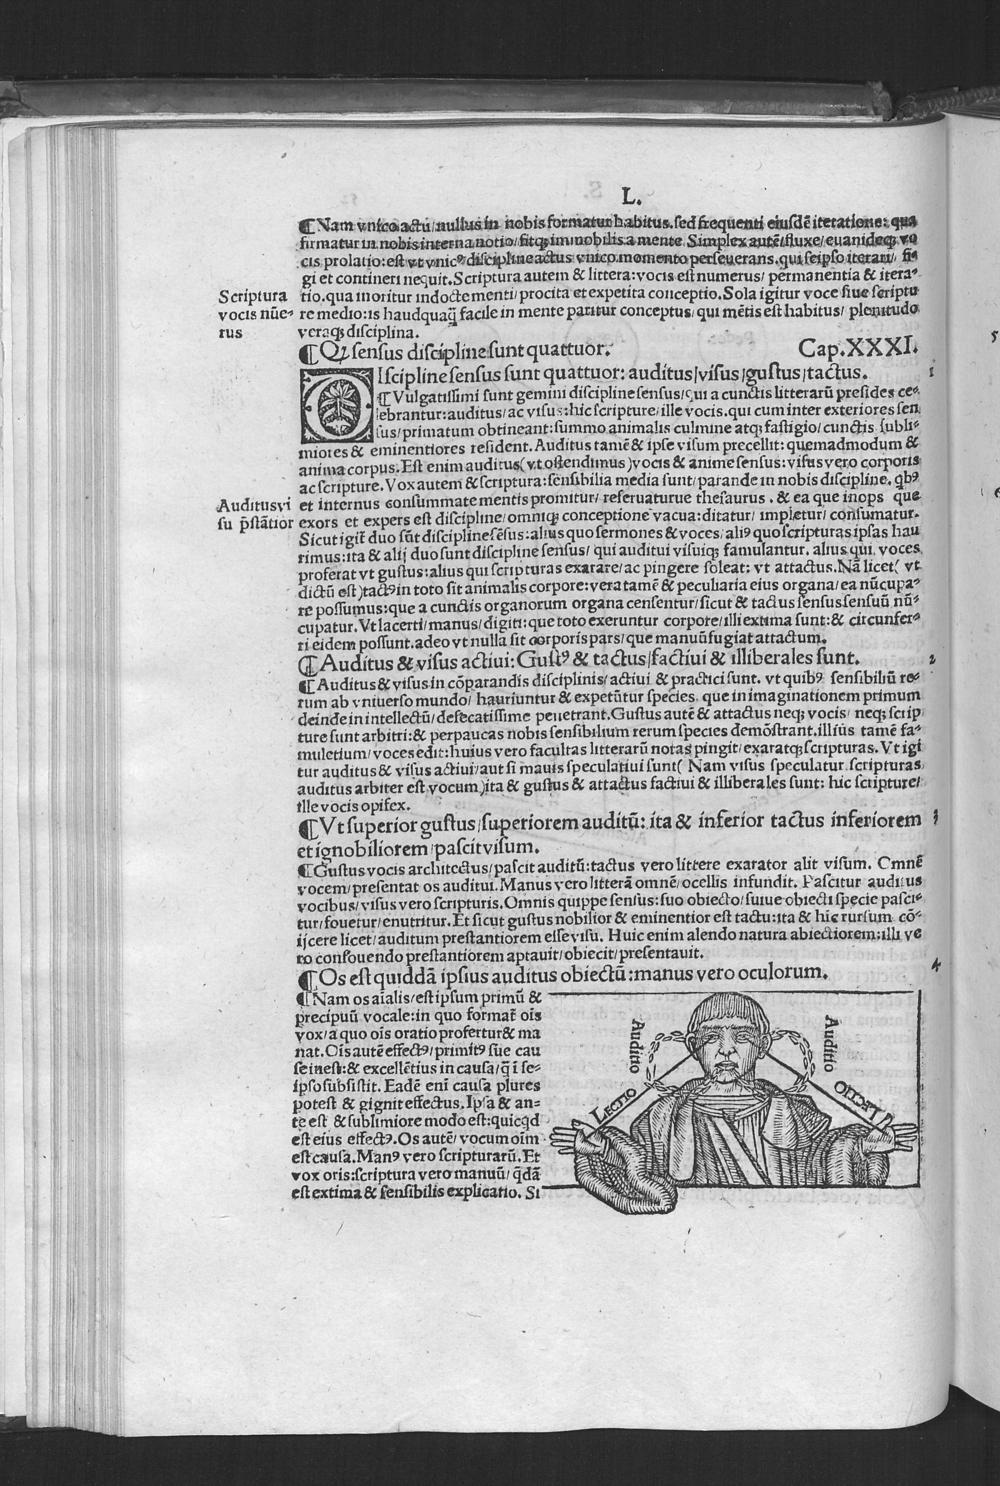 L.
¶Nam vnico actu/nullus in nobis formatur habitus. sed frequenti eiusdē iteratione: qua
firmatur in nobis interna notio/fitq; immobilis a mente. Simplex autē/fluxe/euanideq; vo
cis prolatio: est vt vnicꝰ discipline actus vnico momento perseuerans. qui seipso iterari/ fi-
gi et contineri nequit. Scriptura autem & littera: vocis est numerus/ permanentia & itera-
Scriptura
vocis nūe-
rus
tio. qua inoritur indocte menti/ procita et expetita conceptio. Sola igitur voce siue scriptu
re medio: is haudquaq̄ facile in mente paritur conceptus/ qui mētis est habitus/ plenitudo
veraq; disciplina.
¶Qꝫ sensus discipline sunt quattuor. Cap.XXXI.
DIscipline sensus sunt quattuor: auditus/visus/gustus/tactus. 1
¶Vulgatissimi sunt gemini discipline sensus/qui a cunctis litterarū presides ce-
lebrantur: auditus/ ac visus: hic scripture/ ille vocis. qui cum inter exteriores sen
sus/ primatum obtineant: summo animalis culmine atq; fastigio/ cunctis subli-
miores & eminentiores resident. Auditus tamē & ipse visum precellit: quemadmodum &
anima corpus. Est enim auditus (vt ostendimus) vocis & anime sensus: visus vero corporis
ac scripture. Vox autem & scriptura: sensibilia media sunt/ parande in nobis discipline. qbꝰ
Auditus vi
su p̄stātior
et internus consummate mentis promitur/ reseraturue thesaurus. & ea que inops que
exors et expers est discipline/ omniq; conceptione vacua: ditatur/ impletur/ consumatur.
Sicut igit̄ duo sūt discipline sēsus: alius quo sermones & voces/ aliꝰ quo scripturas ipsas hau
rimus: ita & alij duo sunt discipline sensus/ qui auditui visuiq; famulantur. alius qui voces
proferat vt gustus: alius qui scripturas exarare/ ac pingere soleat: vt attactus. Nā licet (vt
dictū est) tactꝰ in toto sit animalis corpore: vera tamē & peculiaria eius organa/ ea nūcupa-
re possumus: que a cunctis organorum organa censentur/ sicut & tactus sensus sensuū nū-
cupatur. Vt lacerti/ manus/ digiti: que toto exeruntur corpore/ illi extima sunt: & circunfer-
ri eidem possunt. adeo vt nulla sit corporis pars/ que manuū fugiat attactum.
¶Auditus & visus actiui: Gustꝰ & tactus/ factiui & illiberales sunt. 2
¶Auditus & visus in cōparandis disciplinis/ actiui & practici sunt. vt quibꝰ sensibiliū re-
rum ab vniuerso mundo/ hauriuntur & expetūtur species. que in imaginationem primum
deinde in intellectū/ defecatissime penetrant. Gustus autē & attactus neq; vocis/ neq; scrip
ture sunt arbitri: & perpaucas nobis sensibilium rerum species demōstrant. illius tamē fa-
muletium/ voces edit: huius vero facultas litterarū notas pingit/ exaratq; scripturas. Vt igi
tur auditus & visus actiui/ aut si mauis speculatiui sunt (Nam visus speculatur scripturas
auditus arbiter est vocum) ita & gustus & attactus factiui & illiberales sunt: hic scripture/
ille vocis opifex.
¶Vt superior gustus/superiorem auditū: ita & inferior tactus inferiorem 3
et ignobiliorem pascit visum.
¶Gustus vocis architectus/ pascit auditū: tactus vero littere exarator alit visum. Omnē
vocem/ presentat os auditui. Manus vero litterā omnē/ ocellis infundit. Pascitur auditus
vocibus/ visus vero scripturis. Omnis quippe sensus: suo obiecto/ suiue obiecti specie pasci-
tur/ fouetur/ enutritur. Et sicut gustus nobilior & eminentior est tactu: ita & hic rursum cō-
ijcere licet/ auditum prestantiorem esse visu. Huic enim alendo natura abiectiorem: illi ve
ro confouendo prestantiorem aptauit/ obiecit/ presentauit.
¶Os est quiddā ipsius auditus obiectū: manus vero oculorum. 4
¶Nam os aīalis/ est ipsum primū &
precipuū vocale: in quo format̄ oīs
vox/ a quo oīs oratio profertur & ma
nat. Oīs autē effectꝰ/ primitꝰ sue cau
se inest: & excellētius in causa/ q̄ ī se-
ipso subsistit. Eadē enī causa plures
potest & gignit effectus. Ipsa & an-
te est & sublimiore modo est: quicqd
est eius effectꝰ. Os autē/ vocum oīm
est causa. Manꝰ vero scripturarū. Et
vox oris: scriptura vero manuū/ q̄dā
est extima & sensibilis explicatio. Si
Auditio
Auditio
LECTIO
LECTIO